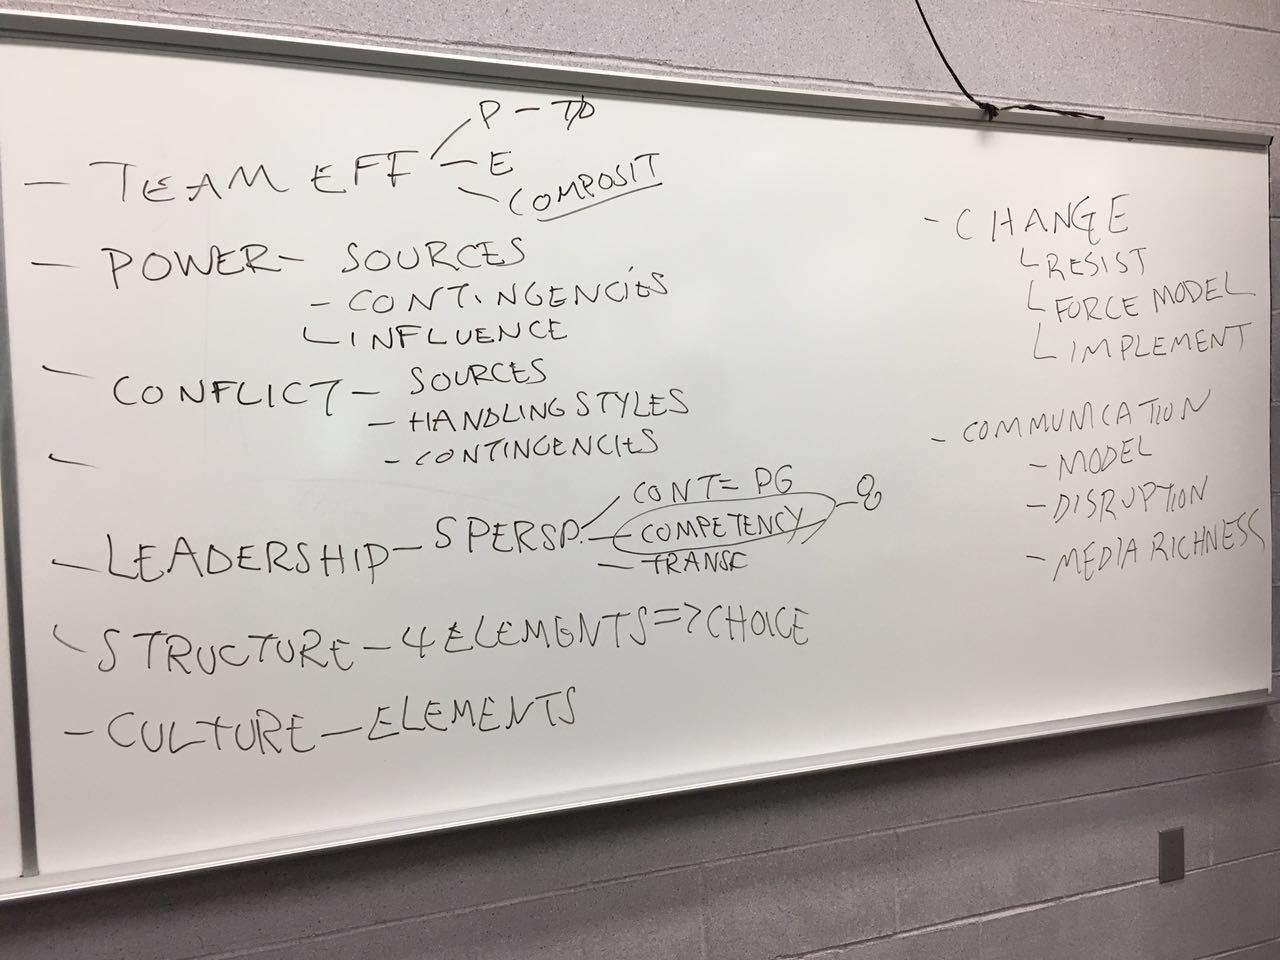 - TEAM EFF
P - T/D
- E
- COMPOSIT
- POWER - SOURCES
- CONTINGENCIES
INFLUENCE
- CONFLICT - SOURCES
- HANDLING STYLES
- CONTINGENCIES
-
- LEADERSHIP - 5 PERSP.
CONT = PG
- COMPETENCY - 8
- TRANSC
- STRUCTURE - 4 ELEMENTS => CHOICE
- CULTURE - ELEMENTS
- CHANGE
RESIST
FORCE MODEL
IMPLEMENT
- COMMUNICATION
- MODEL
- DISRUPTION
- MEDIA RICHNESS